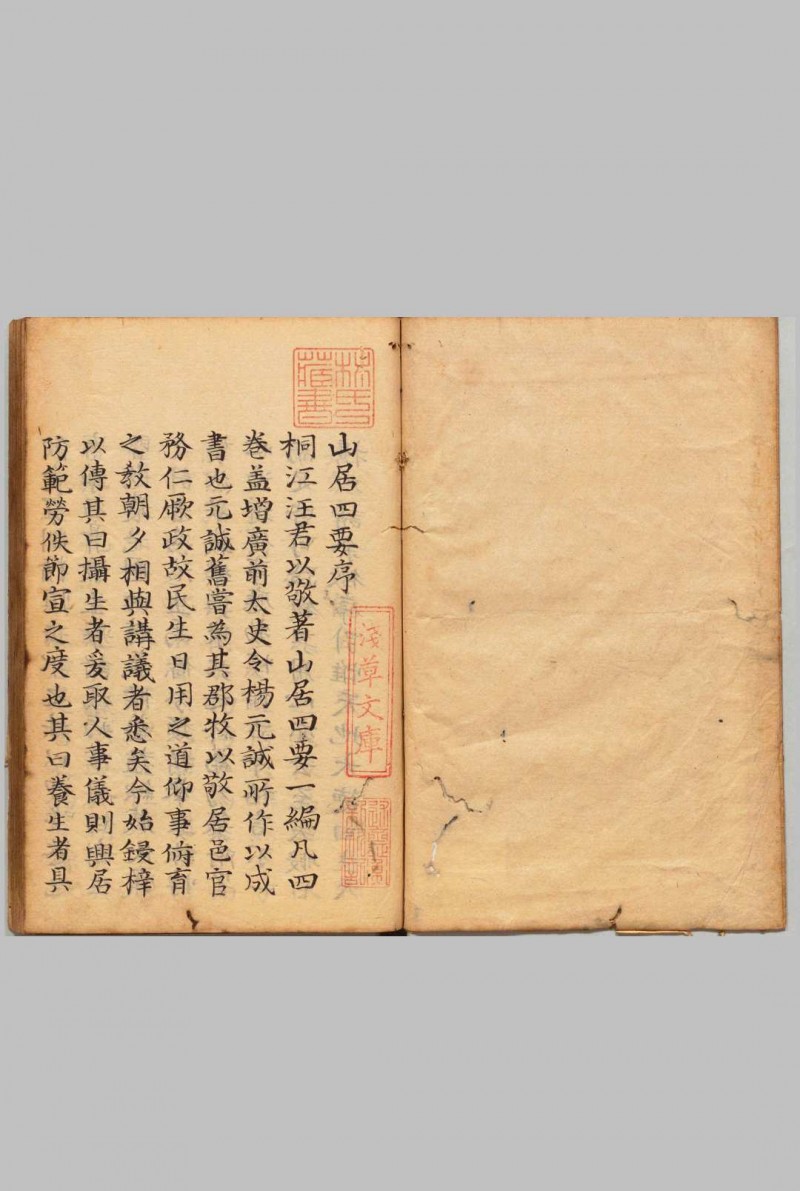 山居四要序
桐江汪君以敬著山居四要一編凡四
巻盖增廣前太史令楊元誠所作以成
書也元誠舊嘗為其郡牧以敬居邑官
務仁厥政故民生日用之道仰事俯育
之教朝夕相與講議者悉矣今始鋟梓
以傳其曰攝生者爰取人事儀則興居
防範勞佚節宣之度也其曰養生者具
林氏
藏書
淺草文庫